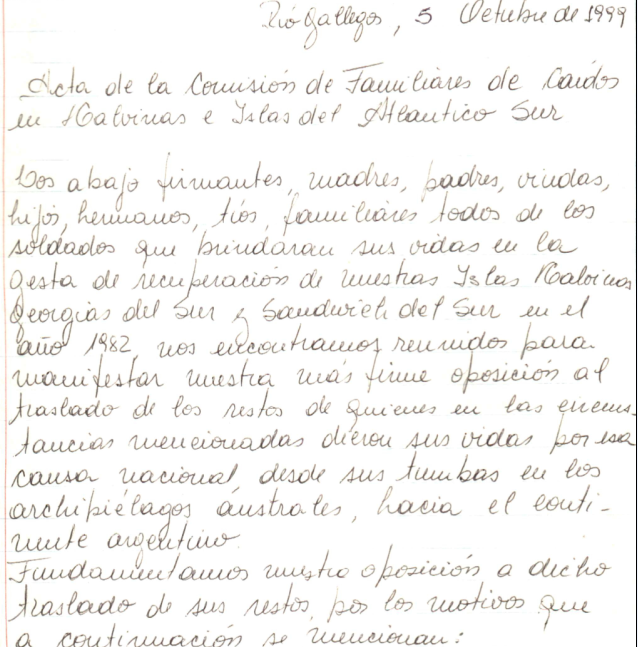 Río Gallegos, 5 Octubre de 1999
Acta de la Comisión de Familiares de Caídos
en Malvinas e Islas del Atlantico Sur
Los abajo firmantes, madres, padres, viudas,
hijos, hermanos, tíos, familiares todos de los
soldados que brindaran sus vidas en la
gesta de recuperación de nuestras Islas Malvinas
Georgias del Sur y Sandwich del Sur en el
año 1982, nos encontramos reunidos para
manifestar nuestra más firme oposición al
traslado de los restos de quienes en las circuns-
tancias mencionadas dieron sus vidas por esa
causa nacional, desde sus tumbas en los
archipiélagos australes, hacia el conti-
nente argentino.
Fundamentamos nuestra oposición a dicho
traslado de sus restos, por los motivos que
a continuación se mencionan: